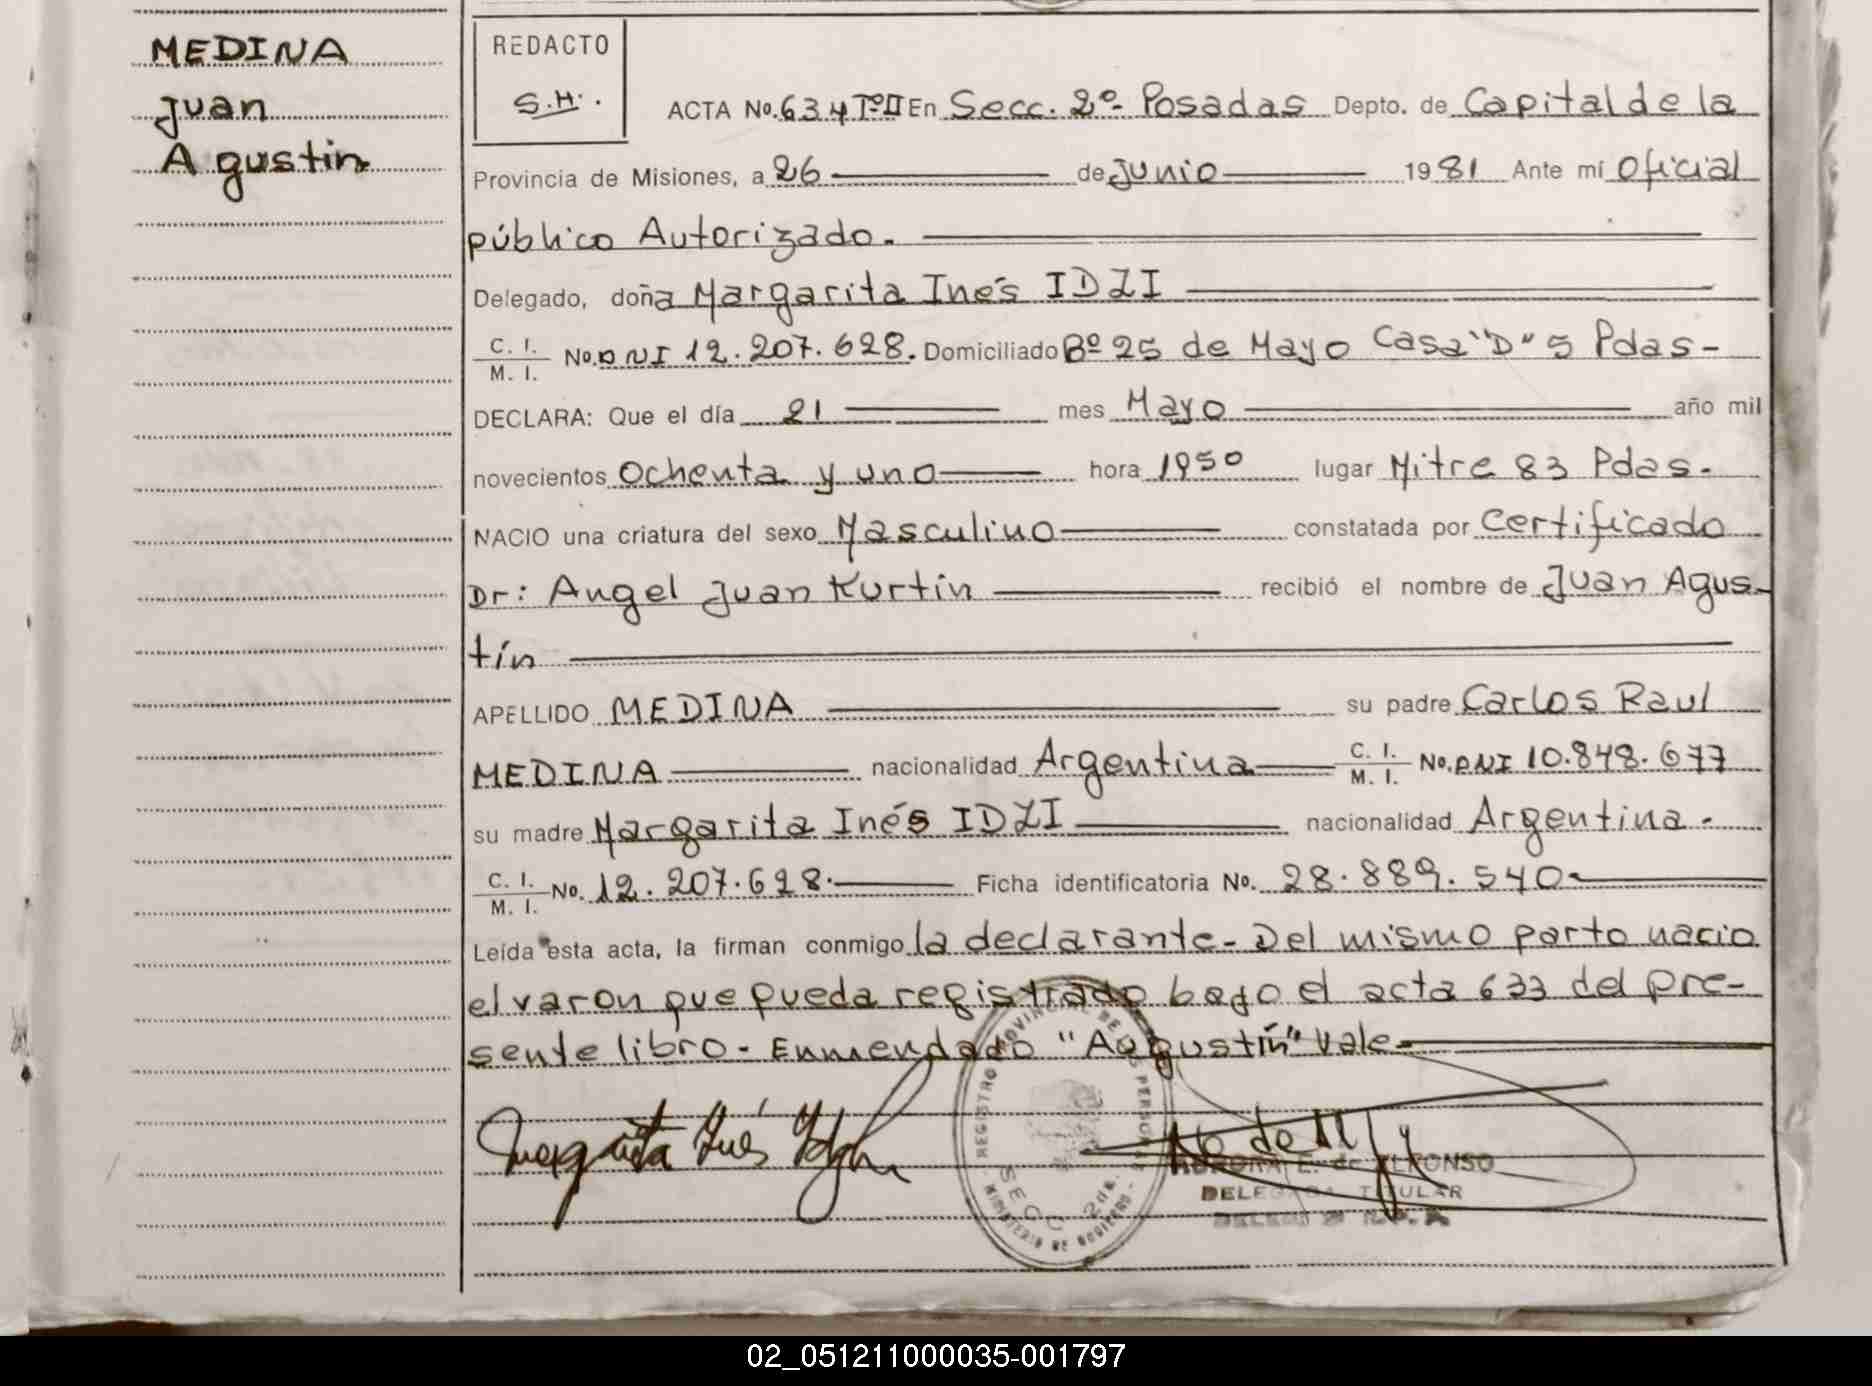 MEDINA
Juan
Agustin
REDACTO
S.H.
ACTA No. 634 Tº II En Secc. 2º- Posadas Depto. de Capital de la
Provincia de Misiones, a 26 de Junio 1981 Ante mí Oficial
público Autorizado.
Delegado, doña Margarita Inés IDZI
C. I.
M. I. No. DNI 12.207.628. Domiciliado Bº 25 de Mayo Casa "D" 5 Pdas-
DECLARA: Que el día 21 mes Mayo año mil
novecientos Ochenta y uno hora 1950 lugar Mitre 83 Pdas.
NACIO una criatura del sexo Masculino constatada por Certificado
Dr: Angel Juan Kurtin recibió el nombre de Juan Agus-
tín
APELLIDO MEDINA su padre Carlos Raul
MEDINA nacionalidad Argentina C. I.
M. I. No. DNI 10.848.677
su madre Margarita Inés IDZI nacionalidad Argentina.
C. I.
M. I. No. 12.207.628. Ficha identificatoria No. 28.889.540
Leída esta acta, la firman conmigo la declarante- Del mismo parto nacio
el varon que pueda registrado bajo el acta 633 del pre-
sente libro- Enmendado "Agustín" Vale
Margarita Inés
REGISTRO PROVINCIAL DE LAS PERSONAS
SECC 2da.
MINISTERIO DE GOBIERNO
AURORA E. de ALFONSO
DELEGADA TITULAR
02_051211000035-001797